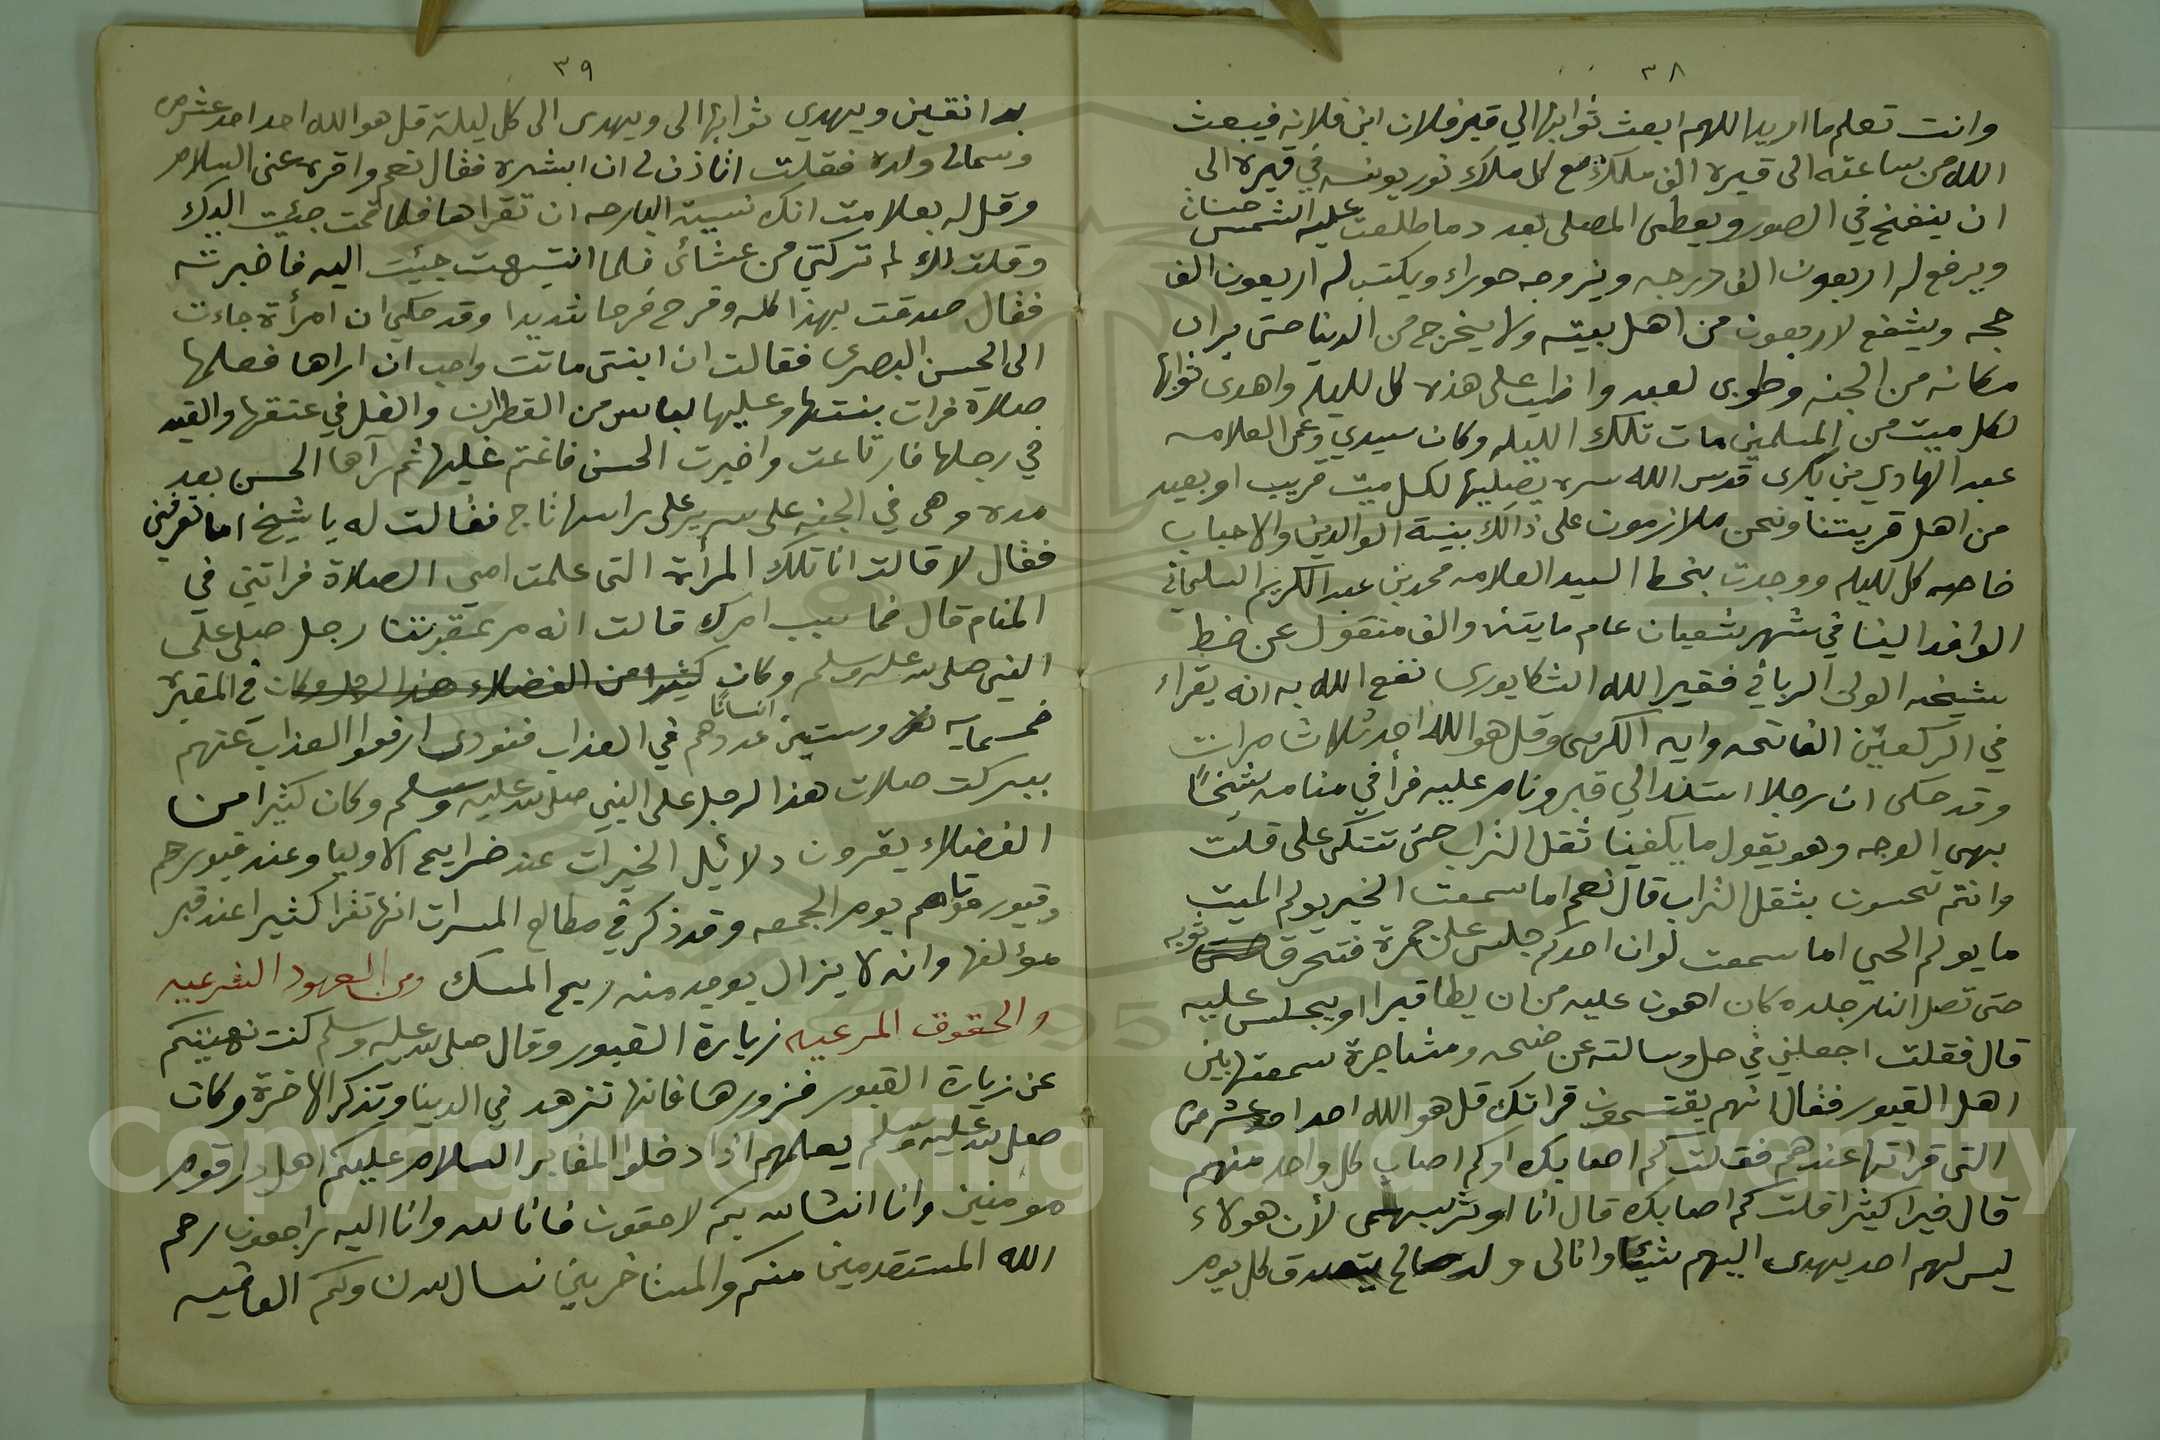 ٣٨
وانت تعلم ما اريد اللهم ابعث ثوابها الي قبر فلان ابن فلانه فيبعث
الله من ساعته الى قبره الف ملك مع كل ملاك نور يونسه في قبره الى
ان ينفخ في الصور ويعطى المصلى بعدد ما طلعت عليه الشمس حسنات
ويرفع له اربعون الف درجه ويزوجه حوراء ويكتب له اربعون الف
حجه ويشفع لاربعون من اهل بيته ولا يخرج من الدنيا حتى يراى
مكانه من الجنه وطوبى لعبد واظب على هذه كل لليله واهدى ثوابها
لكل ميت من المسلمين مات تلك الليله وكان سيدي وعمى العلامه
عبد الهادي بن بكرى قدس الله سره يصليها لكل ميت قريب او بعيد
من اهل قريتنا ونحن ملازمون على ذالك بنية الوالدين والاحباب
خاصه كل لليله ووجدت بخط السيد العلامه محمد بن عبد الكريم السليماني
الوافد الينا في شهر شعبان عام مايتن والف منقول عن خط
شيخه الولى الرباني فقير الله الشكابورى نفع الله به انه يقراء
في الركعتين الفاتحه وايه الكرسى وقل هو الله احد ثلاثا مرات
وقد حكى ان رجلا استند الي قبر ونام عليه فرأ في منامه شيخًا
بهى الوجه وهو يقول ما يكفينا ثقل التراب حتى تتكى على قلت
وانتم تحسون بثقل التراب قال نعم اما سمعت الخبر يولم الميت
ما يولم الحي اما سمعت لوان احدكم جلس على جمرة فتحرق ثوبه
حتى تصل النار جلده كان اهون عليه من ان يطا قبرا او يجلس عليه
قال فقلت اجعلني في حل وسالته عن ضجه ومشاجرة سمعتها بين
اهل القبور فقال انهم يقتسمون قراتك قل هو الله احد احد عشر مره
التى قراتها عندهم فقلت كم اصابك اوكم اصاب كل واحد منهم
قال خيرا كيثرا قلت كم اصابك قال انا لوثربهمى لأن هولاء
ليس لهم احد يهدى اليهم شيئا وانا لى ولد صالح يتصدق كل يوم
٣٩
بدانقين ويهدي ثوابها الى ويهدى الى كل ليلة قل هو الله احد احد عشر مره
وسمالى ولده فقلت اتاذن لى ان ابشره فقال نعم واقره عنى السلام
وقل له بعلامت انك نسيت البارحه ان تقراها فلما نمت جيئت اليك
وقلت لك لم تركتي من عشائى فلما انتبهت جيئت اليه فاخبرته
فقال صدقت بهذا كله وفرح فرحا شديدا وقد حكي ان امرأة جاءت
الى الحسن البصرى فقالت ان ابنتى ماتت واحب ان اراها فعلمها
صلاة فرات بنتها وعليها لباس من القطران والغل في عنقها والقيد
في رجلها فارتاعت واخبرت الحسن فاغتم عليها ثم رآها الحسن بعد
مده وهى في الجنه على سرير على راسها تاج فقالت له يا شيخ اما تعرفنى
فقال لا قالت انا تلك المرأة التى علمت امي الصلاة فراتيني في
المنام قال فما سبب امرك قالت انه مر بمقبرتنا رجل صلى على
النبي صلى الله عليه وسلم وكان كثيرا من الفضلاء هذا الرجل وكان في المقبره
خمسمايه وستين انسانًا عددهم في العذاب فنودى ارفعوا العذاب عنهم
ببركت صلات هذا الرجل على النبي صلى الله عليه وسلم وكان كثيرا من
الفضلاء يقرون دلائل الخيرات عند ضرايح الاوليا وعند قبورهم
وقبور موتاهم يوم الجمعه وقد ذكر في مطالع المسرات انها تقرا كثيرا عند قبر
مؤلفها وانه لا يزال يوجد منه ريح المسك ومن العهود الشرعيه
والحقوق المرعيه زيارة القبور وقال صلى الله عليه وسلم كنت نهيتكم
عن زيارة القبور فزورها فانها تزهد في الدنيا وتذكر الاخرة وكان
صلى الله عليه وسلم يعلمهم اذا دخلوا المقابر السلام عليكم اهل دار قوم
مومنين وانا انشا الله بكم لاحقون فانا لله وانا اليه راجعون رحم
الله المستقدمين منكم والمستاخرين نسال الله لنا ولكم العافيه
Copyright © King Saud University